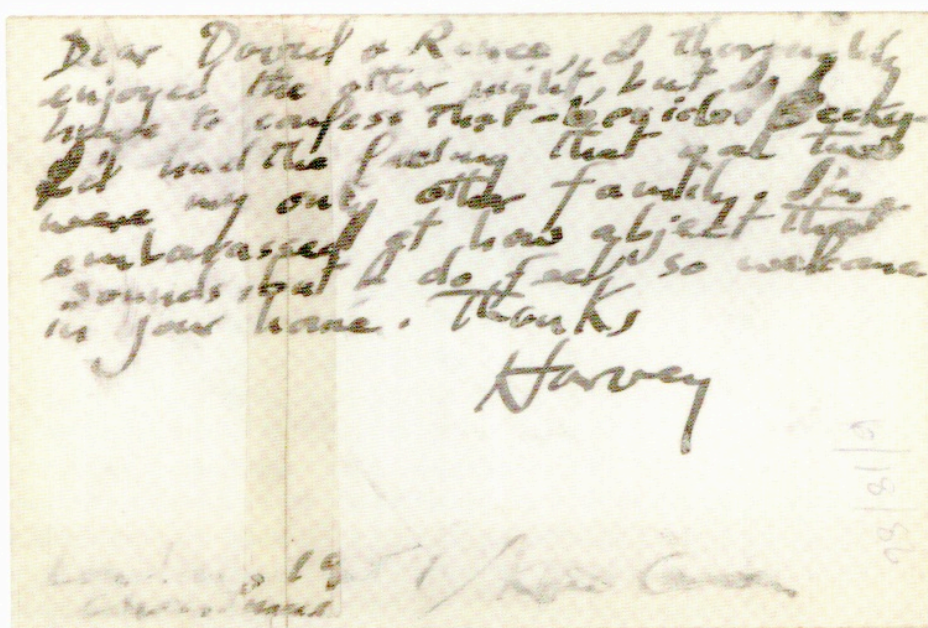 Dear David & Renee, I thoroughly
enjoyed the other night, but I
have to confess that - besides Becky -
I'd had the feeling that you two
were my only other family. I'm
embarassed at how abject that
sounds, but I do feel so welcome
in your home. Thanks
Harvey